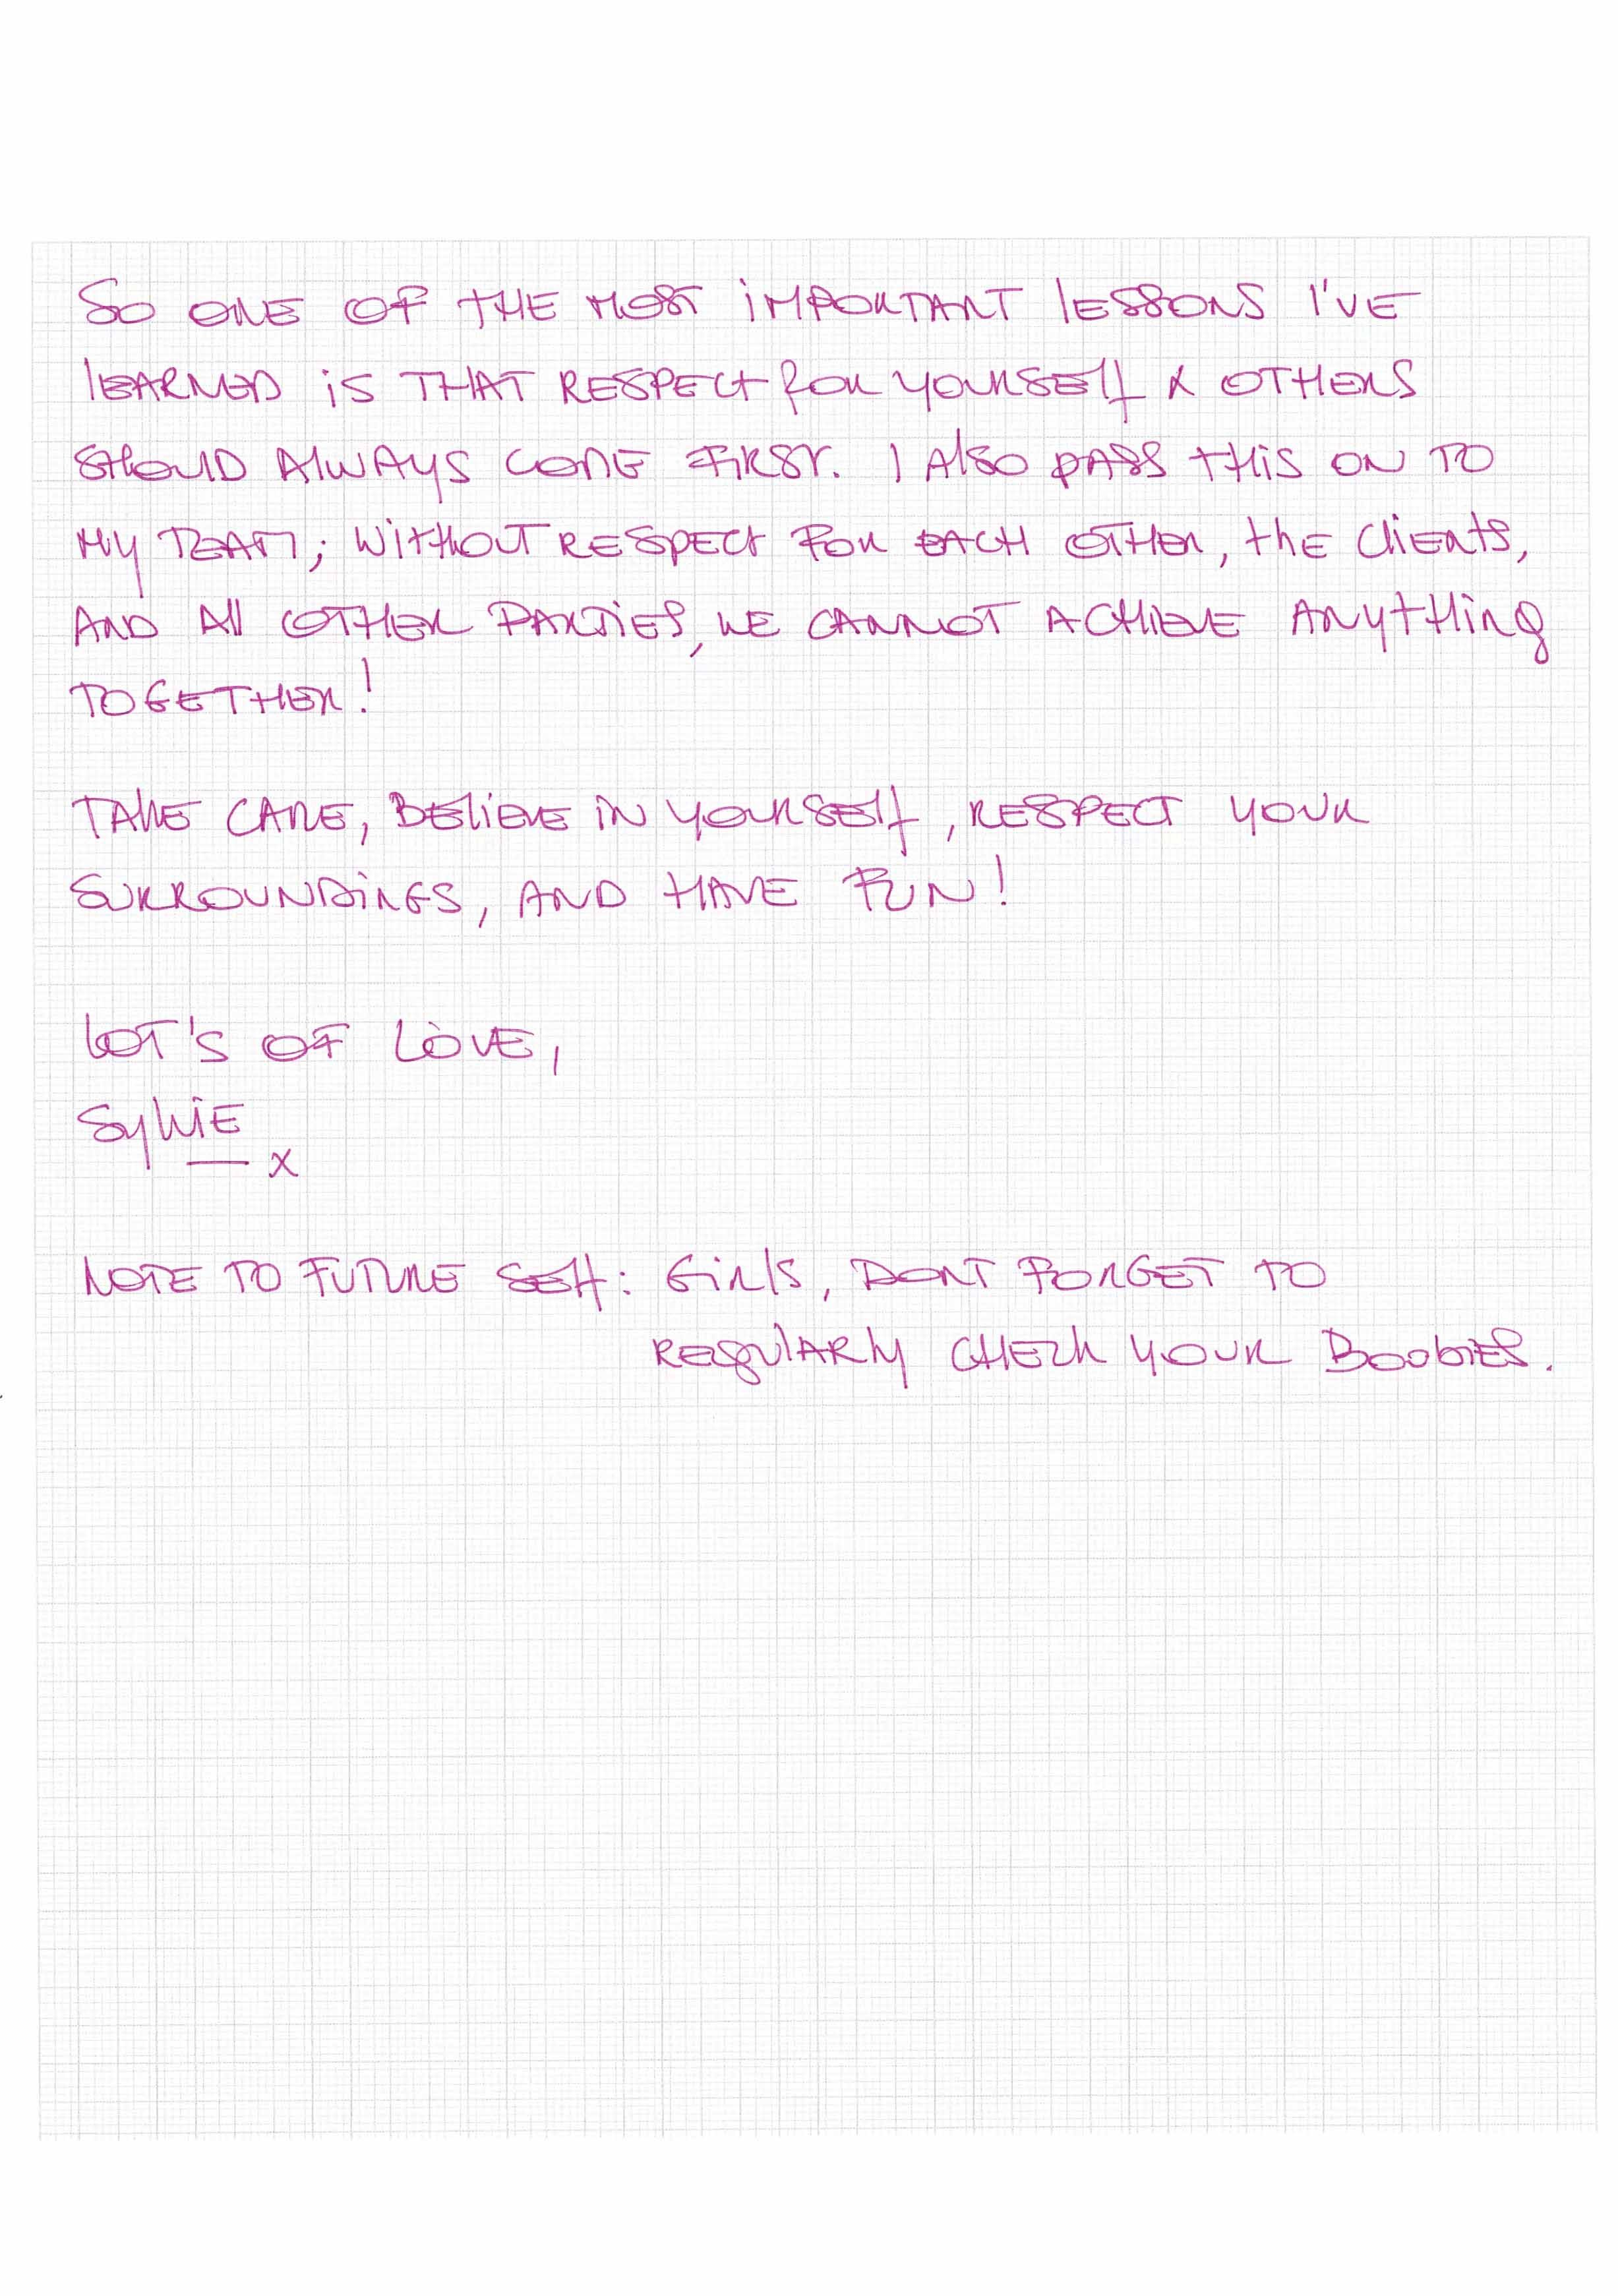 So ONE OF THE MOST iMPORTANT lESSONS I'VE
lEARNED iS THAT RESPECT foR yOURSElf & OTHERS
SHOUlD AlWAyS COME FiRST. I Also pASS tHiS ON TO
My TEAM; WiTHOUT RESPECT FOR EACH OTHER, thE CliENts,
AND All OTHER PARTiES, WE CANNOT ACHiEVE ANytHiNg
TOGETHER!
TAKE CARE, BEliEVE iN yOURSElf, RESPECT yOUR
SURROUNDiNGS, AND HAVE FUN!
lOT'S OF LOVE,
SylViE
x
NOTE TO FUTURE SElf: GiRlS, DONT FORGET TO
REgUlARly CHECk yOUR BoobiES.